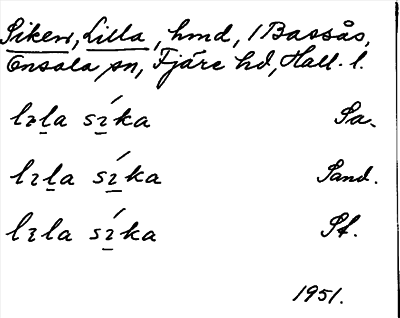 Siken, Lilla, hmd, 1 Bassås,
Onsala sn, Fjäre hd, Hall. l.
lɪla sí̱ka Sa.
lɪḻa sɪ̱́ka Sand.
lɪla sɪ̱́ka St.
1951.